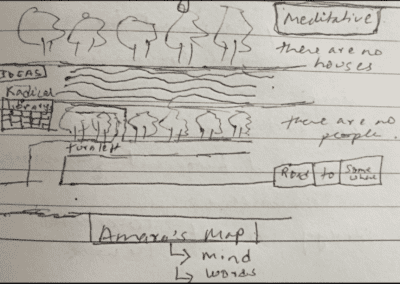 Meditative
there are no
houses
IDEAS
Radical
library
there are no
people.
turn left
Road to Some
where
Amara's Map
mind
words